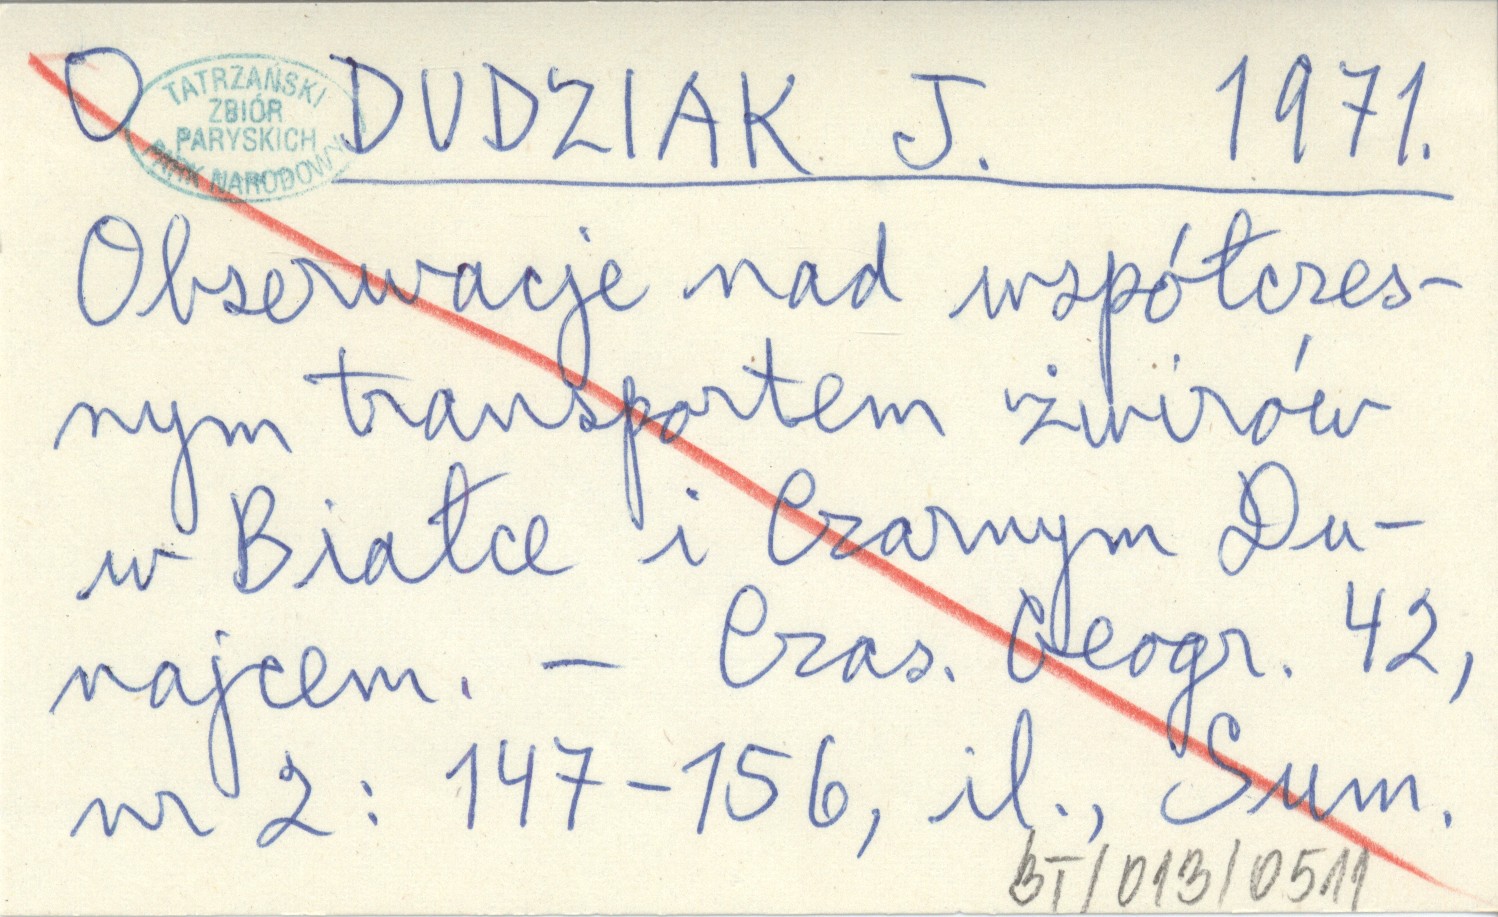 O DUDZIAK J. 1971.
TATRZAŃSKI
ZBIÓR
PARYSKICH
PARK NARODOWY
Obserwacje nad współczes-
nym transportem żwirów
w Białce i Czarnym Du-
najcem. – Czas. Geogr. 42,
nr 2: 147-156, il., Sum.
BT/013/0511